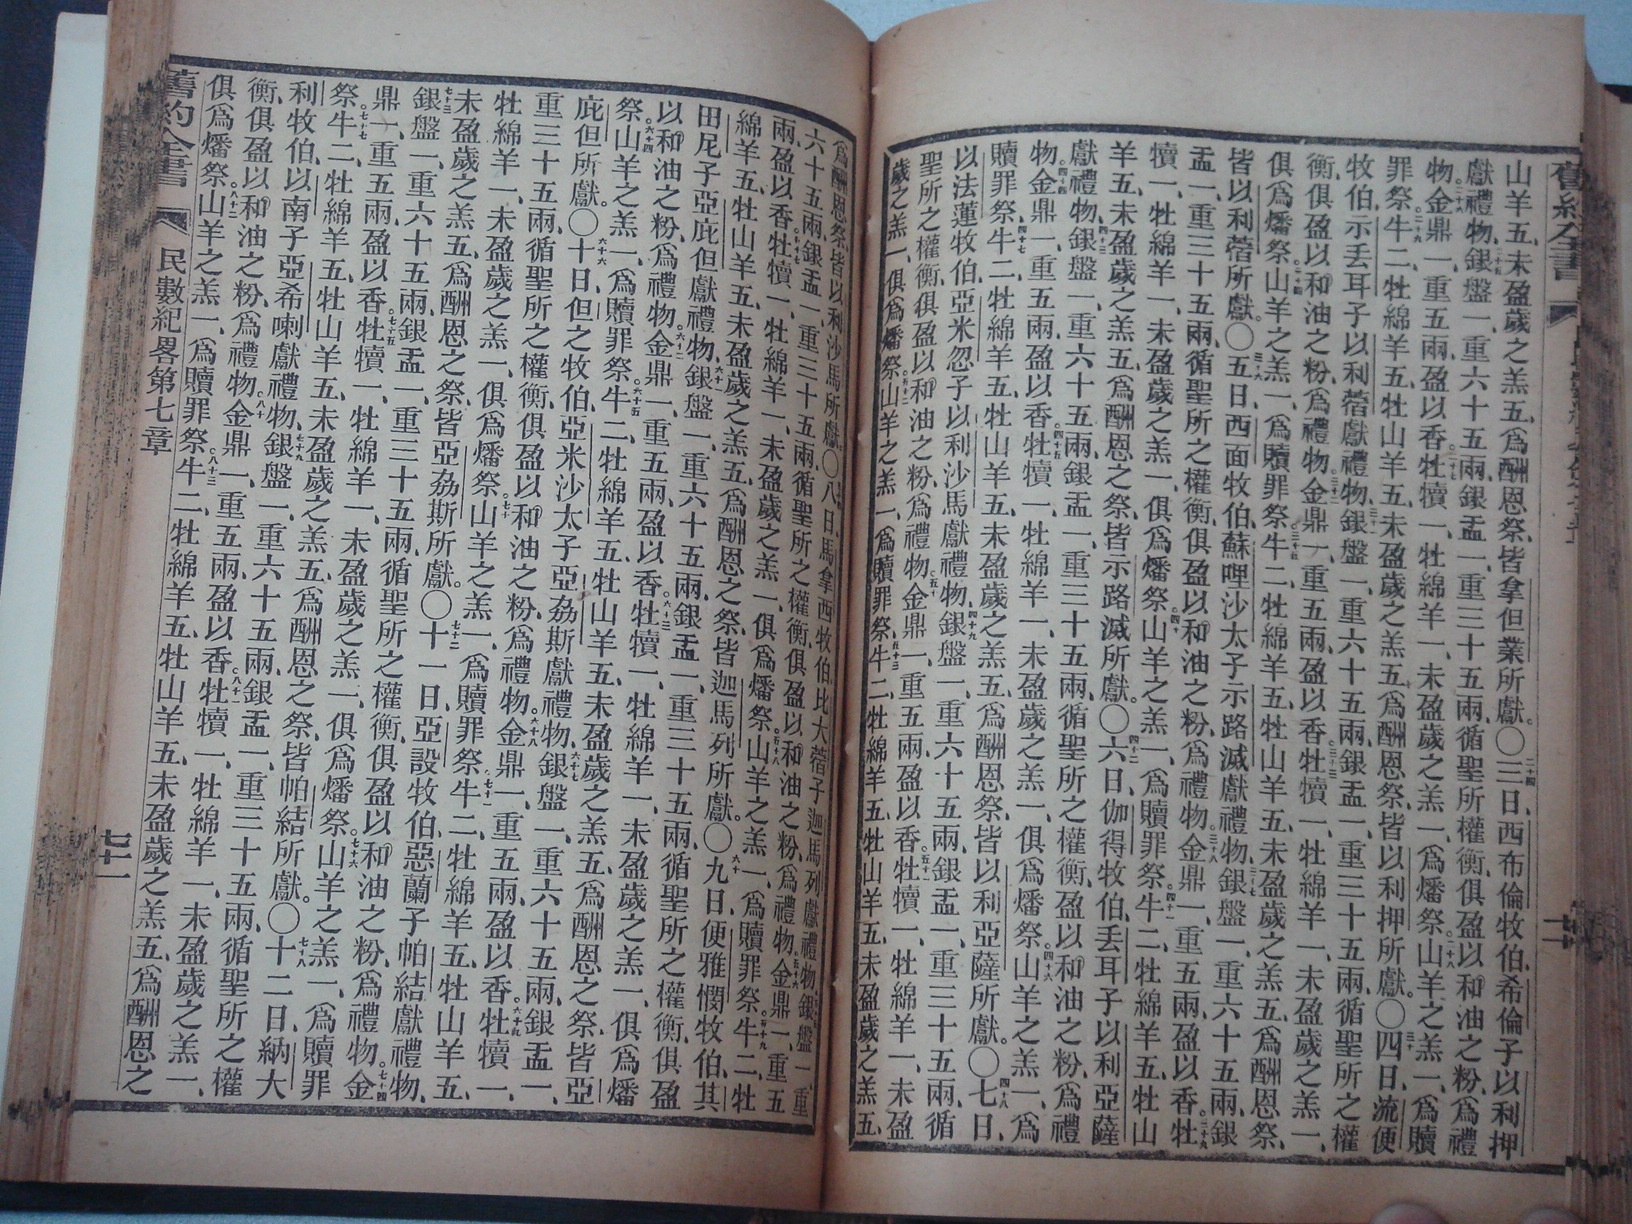 山羊五、未盈歲之羔五、爲酬恩祭、皆拿但業所獻。〇三日、西布倫牧伯、希倫子以利押
獻禮物、銀盤一、重六十五兩、銀盂一、重三十五兩、循聖所權衡、俱盈以和油之粉、爲禮
物、金鼎一、重五兩、盈以香、牡犢一、牡綿羊一、未盈歲之羔一、爲燔祭、山羊之羔一、爲贖
罪祭、牛二、牡綿羊五、牡山羊五、未盈歲之羔五、爲酬恩祭、皆以利押所獻。〇四日、流便
牧伯、示丟耳子以利蓿獻禮物、銀盤一、重六十五兩、銀盂一、重三十五兩、循聖所之權
衡、俱盈以和油之粉、爲禮物、金鼎一、重五兩、盈以香、牡犢一、牡綿羊一、未盈歲之羔一、
俱爲燔祭、山羊之羔一、爲贖罪祭、牛二、牡綿羊五、牡山羊五、未盈歲之羔五、爲酬恩祭、
皆以利蓿所獻。〇五日、西面牧伯、蘇哩沙太子示路滅獻禮物、銀盤一、重六十五兩、銀
盂一、重三十五兩、循聖所之權衡、俱盈以和油之粉、爲禮物、金鼎一、重五兩、盈以香、牡
犢一、牡綿羊一、未盈歲之羔一、俱爲燔祭、山羊之羔一、爲贖罪祭、牛二、牡綿羊五、牡山
羊五、未盈歲之羔五、爲酬恩之祭、皆示路滅所獻。〇六日、伽得牧伯、丟耳子以利亞薩
獻禮物、銀盤一、重六十五兩、銀盂一、重三十五兩、循聖所之權衡、俱盈以和油之粉、爲禮
物、金鼎一、重五兩、盈以香、牡犢一、牡綿羊一、未盈歲之羔一、俱爲燔祭、山羊之羔一、爲
贖罪祭、牛二、牡綿羊五、牡山羊五、未盈歲之羔五、爲酬恩祭、皆以利亞薩所獻。〇七日、
以法蓮牧伯、亞米忽子以利沙馬獻禮物、銀盤一、重六十五兩、銀盂一、重三十五兩、循
聖所之權衡、俱盈以和油之粉、爲禮物、金鼎一、重五兩、盈以香、牡犢一、牡綿羊一、未盈
歲之羔一、俱爲燔祭、山羊之羔一、爲贖罪祭、牛二、牡綿羊五、牡山羊五、未盈歲之羔五、
爲酬恩祭、皆以利沙馬所獻。〇八日、馬拿西牧伯、比大蓿子迦馬列獻禮物、銀盤一、重
六十五兩、銀盂一、重三十五兩、循聖所之權衡、俱盈以和油之粉、爲禮物、金鼎一、重五
兩、盈以香、牡犢一、牡綿羊一、未盈歲之羔一、俱爲燔祭、山羊之羔一、爲贖罪祭、牛二、牡
綿羊五、牡山羊五、未盈歲之羔五、爲酬恩之祭、皆迦馬列所獻。〇九日、便雅憫牧伯、其
田尼子亞庇但獻禮物、銀盤一、重六十五兩、銀盂一、重三十五兩、循聖所之權衡、俱盈
以和油之粉、爲禮物、金鼎一、重五兩、盈以香、牡犢一、牡綿羊一、未盈歲之羔一、俱爲燔
祭、山羊之羔一、爲贖罪祭、牛二、牡綿羊五、牡山羊五、未盈歲之羔五、爲酬恩之祭、皆亞
庇但所獻。〇十日、但之牧伯、亞米沙太子亞劦斯獻禮物、銀盤一、重六十五兩、銀盂一、
重三十五兩、循聖所之權衡、俱盈以和油之粉、爲禮物、金鼎一、重五兩、盈以香、牡犢一、
牡綿羊一、未盈歲之羔一、俱爲燔祭、山羊之羔一、爲贖罪祭、牛二、牡綿羊五、牡山羊五、
未盈歲之羔五、爲酬恩之祭、皆亞劦斯所獻。〇十一日、亞設牧伯、惡蘭子帕結獻禮物、
銀盤一、重六十五兩、銀盂一、重三十五兩、循聖所之權衡、俱盈以和油之粉、爲禮物、金
鼎一、重五兩、盈以香、牡犢一、牡綿羊一、未盈歲之羔一、俱爲燔祭、山羊之羔一、爲贖罪
祭、牛二、牡綿羊五、牡山羊五、未盈歲之羔五、爲酬恩之祭、皆帕結所獻。〇十二日、納大
利牧伯、以南子亞希喇獻禮物、銀盤一、重六十五兩、銀盂一、重三十五兩、循聖所之權
衡、俱盈以和油之粉、爲禮物、金鼎一、重五兩、盈以香、牡犢一、牡綿羊一、未盈歲之羔一、
俱爲燔祭、山羊之羔一、爲贖罪祭、牛二、牡綿羊五、牡山羊五、未盈歲之羔五、爲酬恩之
舊約全書 民數紀畧第七章